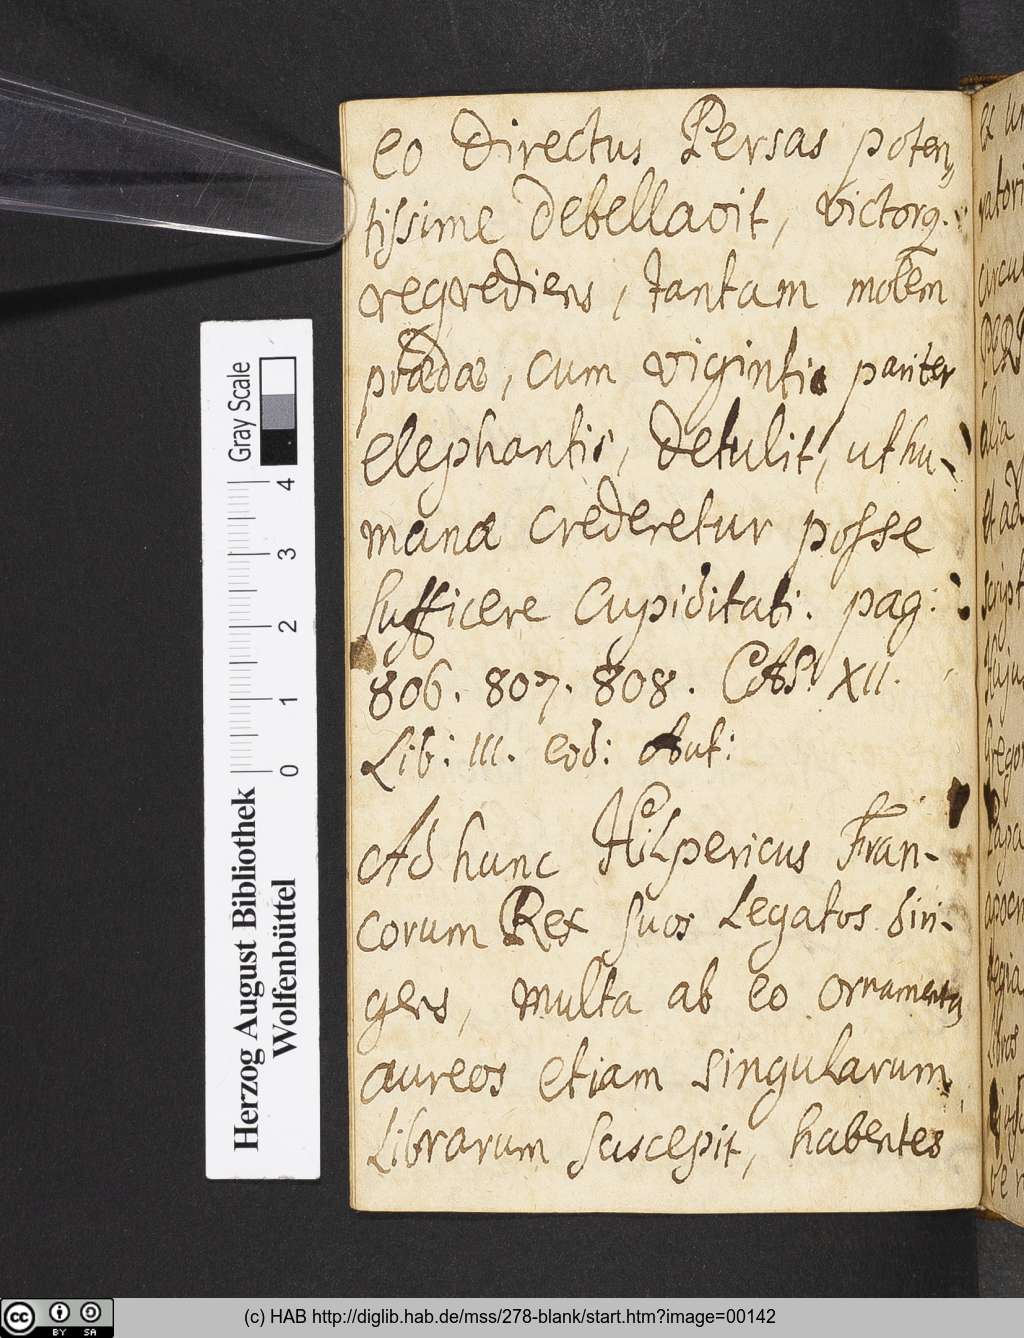 eo directus Persas poten,,
tissime debellavit, victorq.
regrediens, tantam molem
prædæ, cum viginti pariter
elephantis, detulit, ut hu-
manæ crederetur posse
sufficere cupiditati. pag:
806. 807. 808. CAS. XII.
Lib: III. eod: Aut:
Ad hunc Hilpericus Fran-
corum Rex suos Legatos diri-
gens, multa ab eo ornamenta,
aureos etiam singularum
Librarum suscepit, habentes
Herzog August Bibliothek
Wolfenbüttel
Gray Scale
0 1 2 3 4
cc BY SA
(c) HAB http://diglib.hab.de/mss/278-blank/start.htm?image=00142